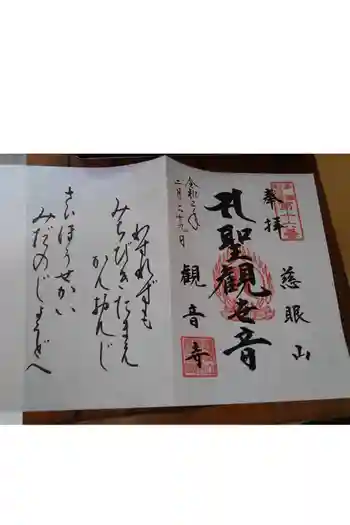 奉拝
慈眼山
聖観世音
観音寺
令和二年
二月二十九日
わすれずも
みちびきたまえ
かんおんじ
さいほうせかい
みだのじょうどへ